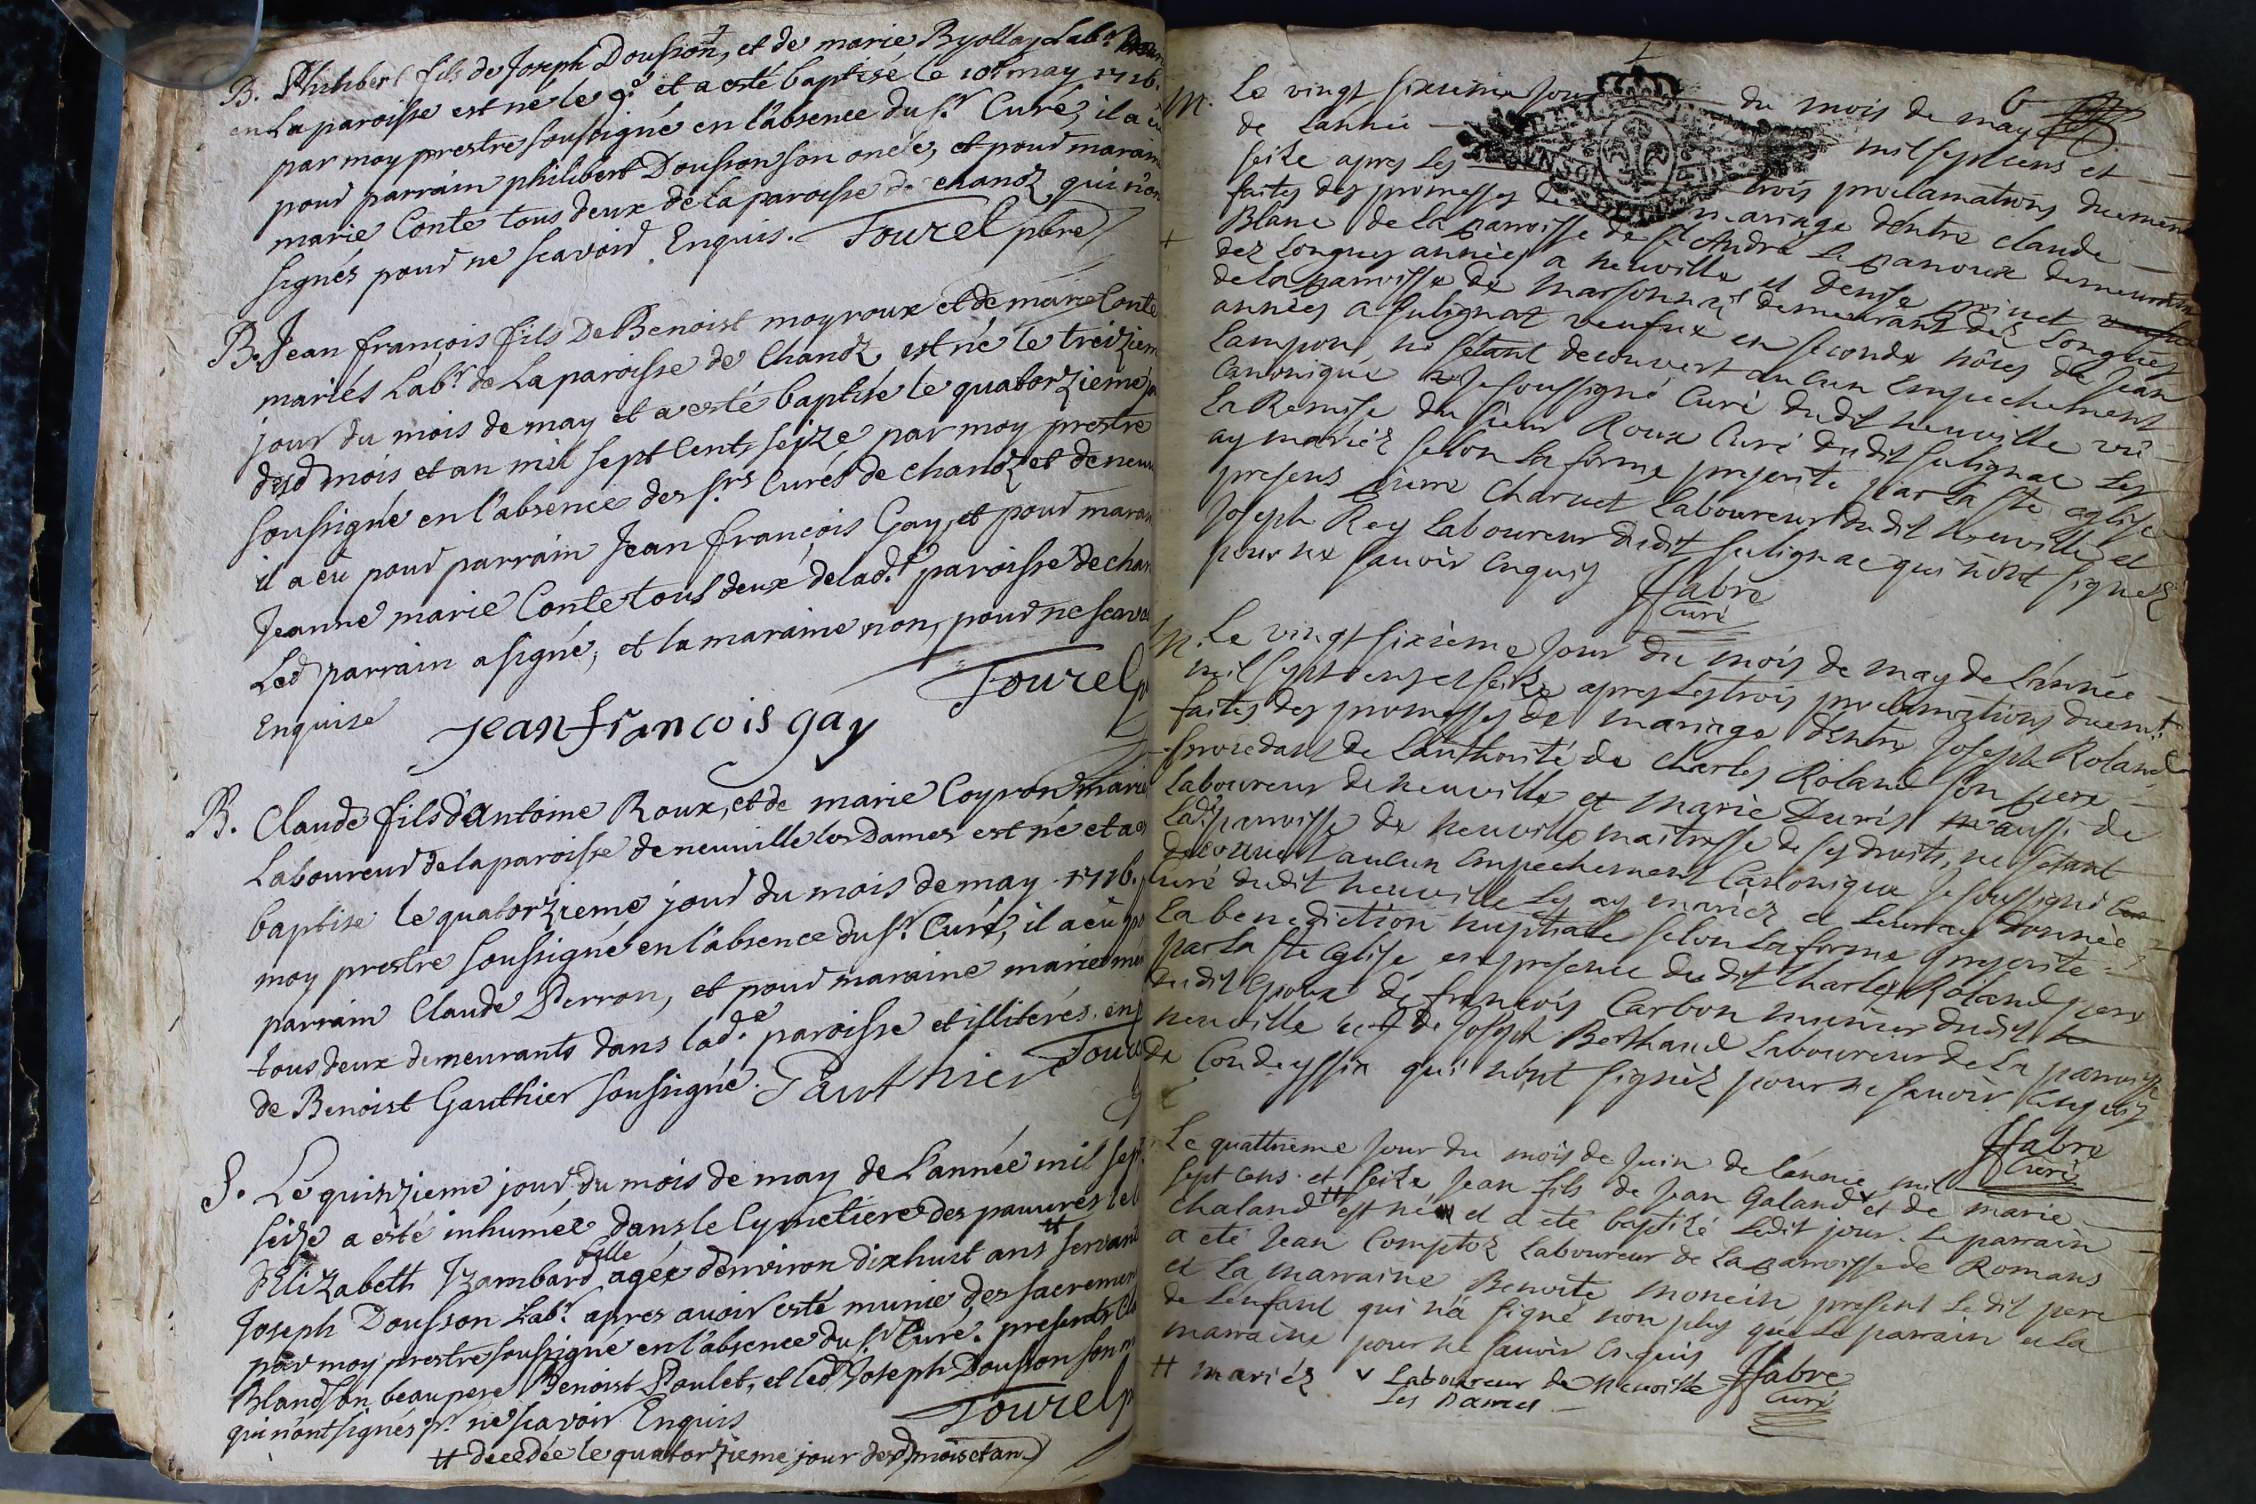 B. Philibert fils de Joseph Doussont, et de marie Byollay Labr
en La paroisse est ne le 9e et a esté baptisé le 10e may 1716.
par moy prestre soussigné en l'absence du sr Curé, il a eu
pour parrain philibert Dousson son oncle, et pour maraine
marie Conte tous deux de la paroisse de chanoz qui n'on
signés pour ne scavoir Enquis. Tourel pbre
B. Jean françois fils De Benoist moyroux et de marie Conte
mariés Labrs de La paroisse de Chanoz est né le treiziem
jour du mois de may et a esté baptisé le quatorzieme
desd mois et an mil sept Cents seize par moy prestre
soussigné en l'absence des srs Curés de chanoz et de neu
il a eu pour parrain Jean françois Gay, et pour marai
Jeanne marie Conte tous deux de lade paroisse de chan
Led parrain a signé, et la maraine non, pour ne scavo
Enquise Tourel p
jean francois gay
B. Claude fils d'Antoine Roux, et de marie Coyron marié
Laboureur de la paroisse de neuuille les Dames est né et a es
baptise le quatorzieme jour du mois de may 1716.
moy prestre soussigné en l'absence du sr Curé, il a eu p
parrain Claude Perron, et pour maraine marie
tous deux demeurants dans lade paroisse et illiterés, en p
de Benoist Gauthier soussigné. Gauthier Toure
S. Le quinzieme jour du mois de may de L'année mil sept
seize a esté inhumée dans le Cymetiere des pauures le
Elizabeth Izambard fille agée d'enuiron dix huit ans # seruant
Joseph Dousson Labr. apres auoir esté munie des sacremen
par moy prestre soussigné en l'absence du sr Curé. presents Cla
Bland son beaupere Benoist Poulet, et led Joseph Dousson son m
qui n'ont signés pr. ne scavoir Enquis Tourel p
# decedée le quatorzieme jour desd mois et an
6
M. Le vingt sixieme Jour du mois de may
de Lannée mil sept cens et
seize apres Les trois proclamations duement
faites des promesses de mariage dentre claude
+ Blanc de La parroisse de st André Le panoux demeurant
dez Longues années a neuville et denise poinet
de la parroisse de Marsonnas demeurant dez Longues
années a sulignat veufue en seconde nôces de Jean
Lampon, ne setant decouvert aucun empechement
Canonique Je soussigné Curé dudit neuville vû
La Remise du sieur Roux Curé dudit sulignac Les
ay mariéz selon La forme prescrite par La ste eglise
presens pierre Charuet Laboureur dudit neuville et
Joseph Rey Laboureur dudit sulignac qui n'ont signez
pour ne sauoir enquis ffabre
Curé
M. Le vingt sixième Jour du mois de may de L'année
mil sept cens et seize apres Les trois proclamations duemt.
faites des promesses de mariage dentre Joseph Roland
procedant de Lauthorité de Charles Roland son pere
Laboureur de neuville et Marie Duris aussi de
Lade parroisse de neuville maitresse de ses droits, ne setant
decouuert aucun empechement Canonique Je soussigné
curé dudit neuville Les ay mariéz et Leur ay donnée
La benediction nuptiale selon La forme prescrite
par La ste eglise en presence dudit Charles Roland pere
dudit epoux de françois Carbon munier dudit
neuville et de Joseph Berthaud Laboureur de La parroisse
de Condeyssia qui n'ont signéz pour ne sauoir enquis
ffabre
Curé
Le quattrieme Jour du mois de Juin de L'année mil
sept cens et seize Jean fils de Jean Galand v et de marie
Chaland # est né et a eté baptizé Ledit jour. Le parrain
a eté Jean Comptoz Laboureur de La parroisse de Romans
et La marraine Benoite Moncin present Ledit pere
de Lenfant qui n'a signé non plus que Le parrain et La
marraine pour ne sauoir enquis ffabre
Curé
# mariéz v Laboureur de Neuville
Les Dames